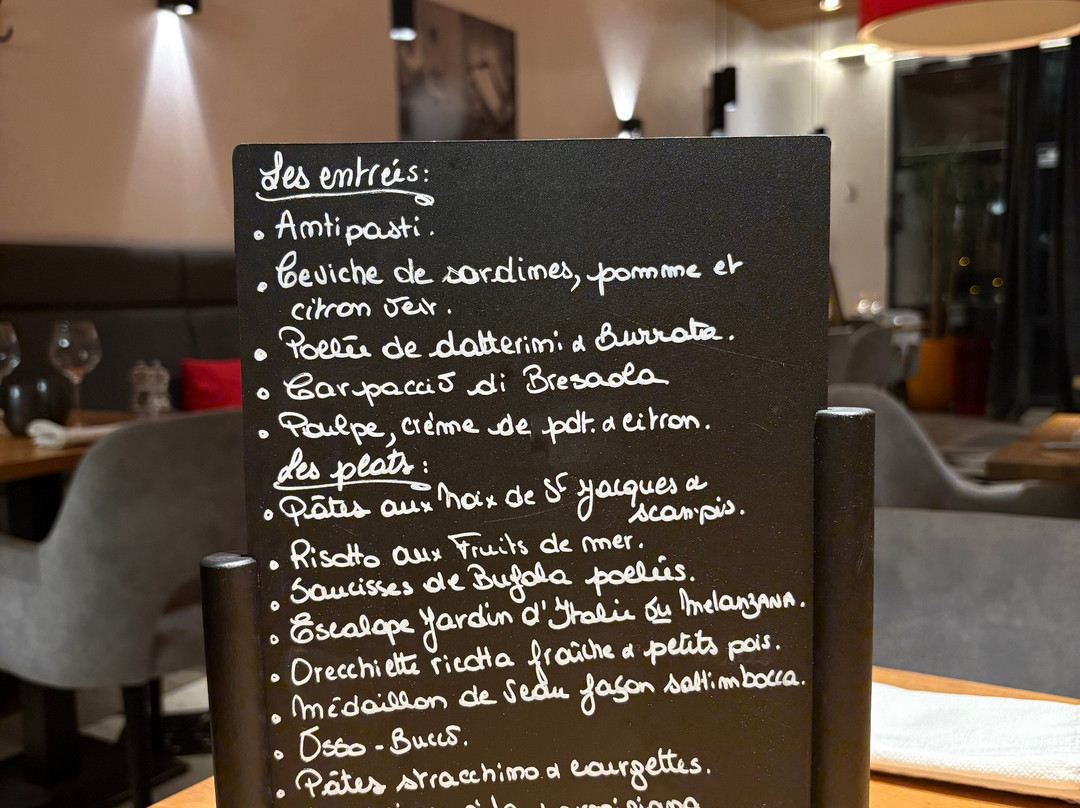 Les entrées:
• Antipasti.
• Ceviche de sardines, pomme et
citron vert.
• Poelée de datterini & Burrata.
• Carpaccio di Bresaola
• Poulpe, crème de pdt. & citron.
Les plats:
• Pâtes aux Noix de St Jacques &
scampis.
• Risotto aux Fruits de mer.
• Saucisses de Bufala poelées.
• Escalope Jardin d'Italie ou Melanzana.
• Orecchiette ricotta fraîche & petits pois.
• Médaillon de Veau façon saltimbocca.
• Osso-Bucco.
• Pâtes stracchino & courgettes.